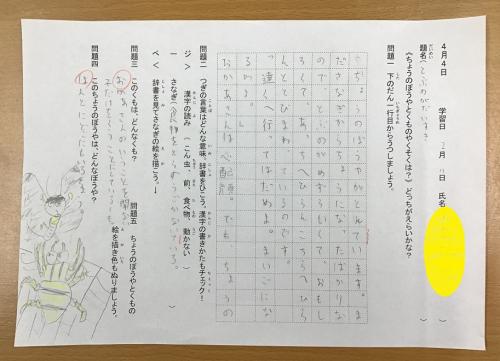 4月4日　学習日　2月　日　氏名
題名（とぶのがていすき）
《ちょうのぼうやとくものやくそくは？》どっちがえらいかな？
問題一　下のだん一行目からうつしましょう。
ちょうのぼうやがとんでいます。ま
ださなぎからちょうになった、ばかりな
ので、とぶのがめずらしくて、おもし
ろくて、あっちへひらひら、こっちへひら
んととびまわっているのです。
「遠くへ行ってはだめよ。まいごにな
るわよ。」
おかあさんは心配顔。でも、ちょうの
問題二　つぎの言葉はどんな意味。辞書をひこう。漢字の書きかたもチェック！
ジ＞　漢字の読み　（こん虫、前、食べ物、動かない
一　さなぎ（食物をとらずうごかない　）
ペ＜　辞書を見てさなぎの絵を描こう。↓
問題三　このくもは、どんなくも？
おかあさんのいうことを聞
問題四　このちょうのぼうやは、どんなぼうや？
問題五　ちょうのぼうやとくもの
絵を描き色もぬりましょう。